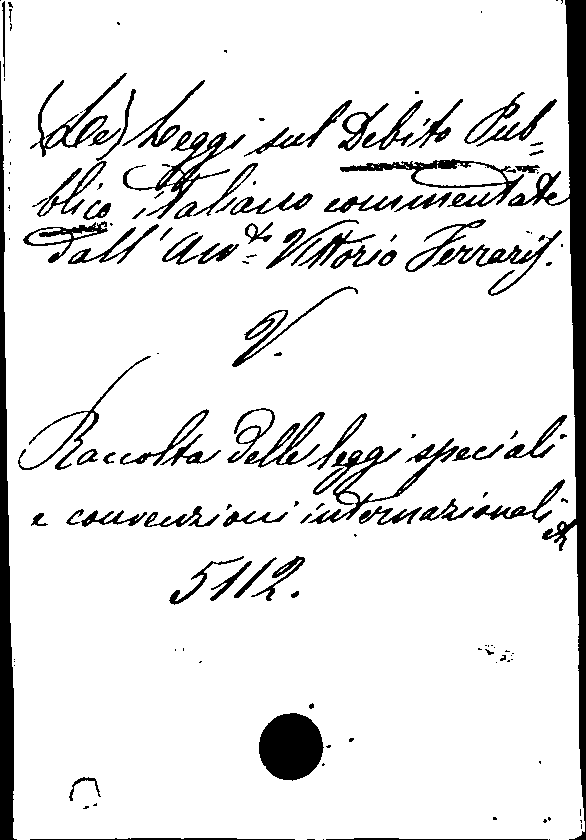 (Le) Leggi sul Debito Pub=
blico italiano commentate
dall' Avv.to Vittorio Ferraris.
V.
Raccolta delle leggi speciali
e convenzioni internazionali
5112.